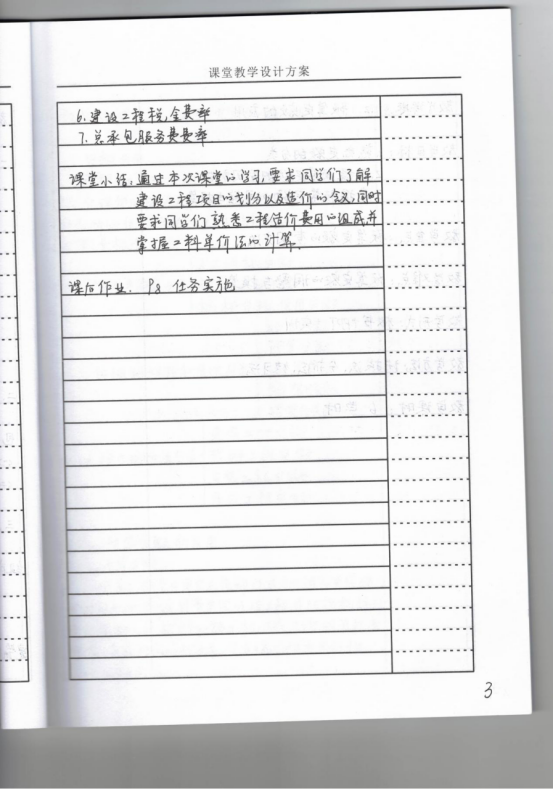 课堂教学设计方案
6.建设工程税、金费率
7.总承包服务费费率
课堂小结:通过本次课堂的学习,要求同学们了解
建设工程项目的划分以及造价的含义,同时
要求同学们熟悉工程造价费用的组成并
掌握工料单价法的计算.
课后作业. P8 任务实施
3